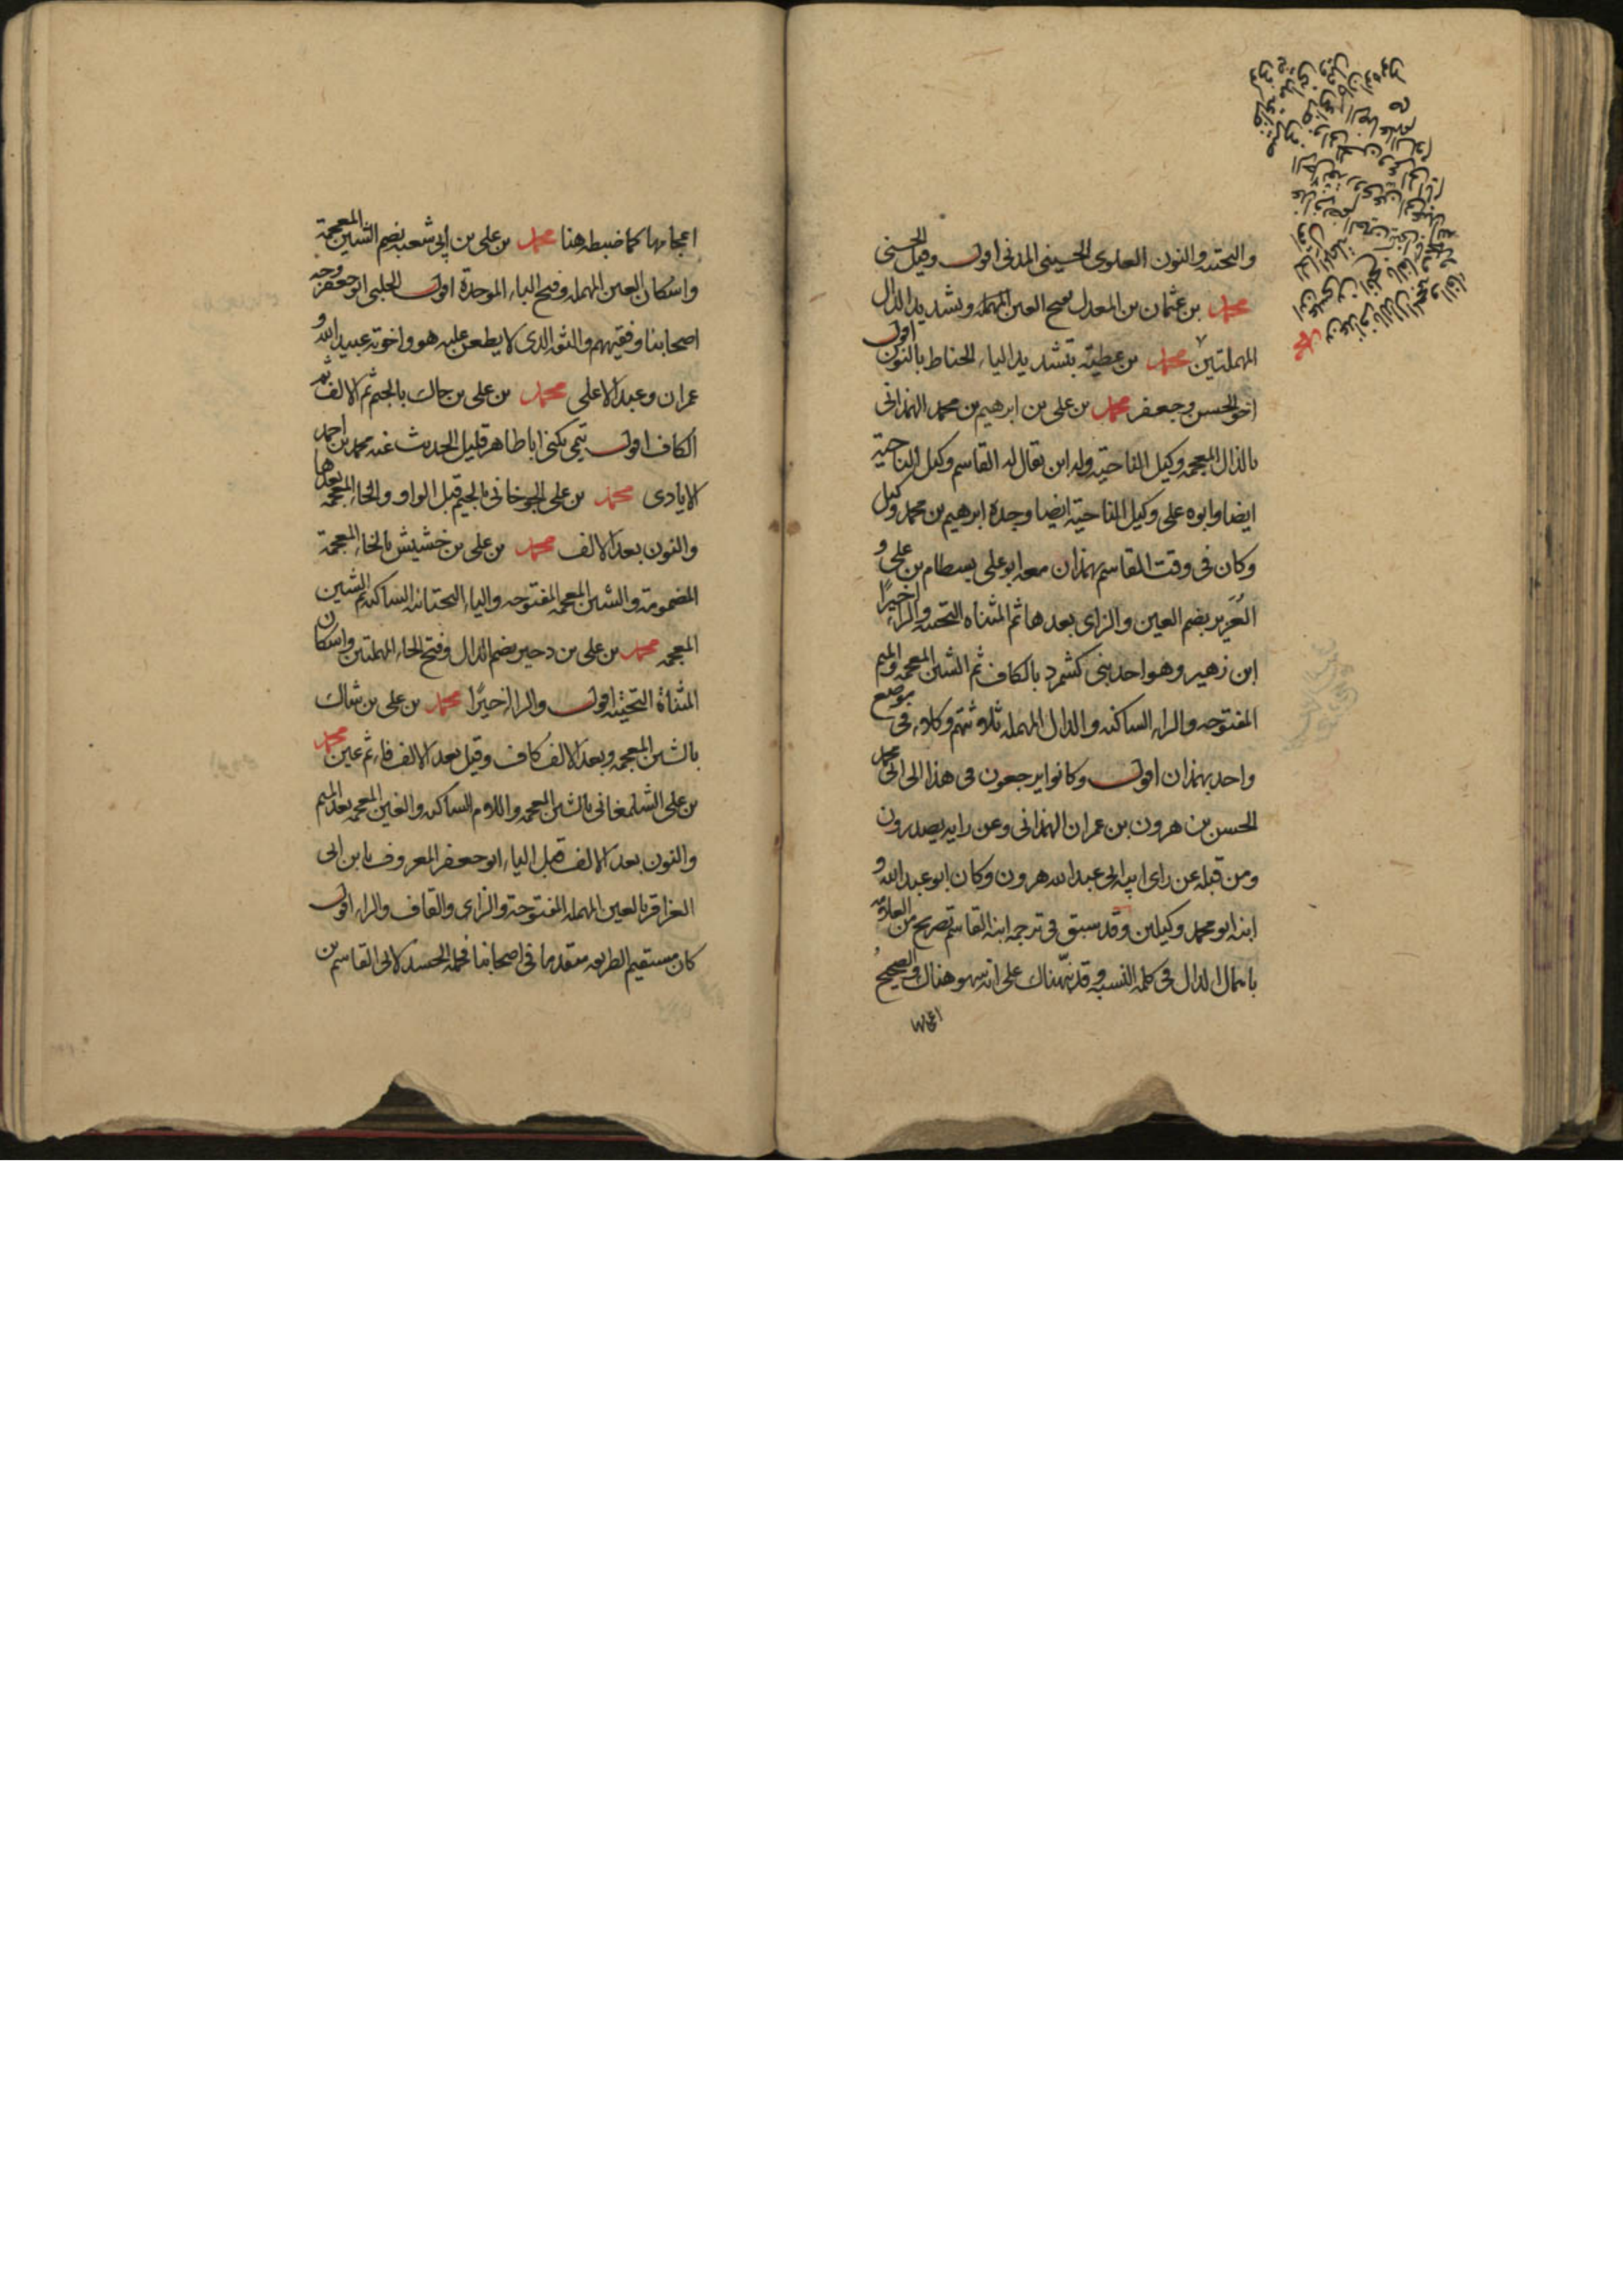 والتحتية والنون العلوى الحسينى المدنى اقول وقيل الحسنى
محمد بن عثمان بن المعدل بفتح العين المهملة وتشديد الدال
المهملتين محمد بن عطية بتشديد الياء الحناط بالنون اقول
اخو الحسن وجعفر محمد بن على بن ابرهيم بن محمد الهمذانى
بالذال المعجمه وكيل الناحية وله ابن يقال له القاسم وكيل الناحية
ايضا وابوه على وكيل الناحية ايضا وجده ابرهيم بن محمد وكيل
وكان فى وقت القاسم بهمذان معه ابو على بسطام بن على و
العُزَير بضم العين والزاى بعدها ثم المثناه التحتيه والراء اخيرًا
ابن زهير وهو احد بنى كشمرد بالكاف ثم الشين المعجمه والميم
المفتوحه والراء الساكنه والدال المهمله ثلاثتهم وكلاء فى موضع
واحد بهمذان اقول وكانوا يرجعون فى هذا الى ابى محمد
الحسن بن هرون بن عمران الهمذانى وعن رايه يصدرون
ومن قبله عن راى ابيه ابى عبد الله هرون وكان ابو عبد الله و
ابنه ابو محمد وكيلين وقد سبق فى ترجمه ابنه القاسم تصريح من العلامة
باهمال الدال فى كلمه النسبه وقد نبّهناك على انه سهو هناك والصحيح
اعجامها
اعجامها كما ضبطه هنا محمد بن على بن ابى شعبه بضم الشين المعجمة
واسكان العين المهمله وفتح الباء الموحدة اقول الحلبى ابو جعفر وجه
اصحابنا وفقيههم والثقه الذى لا يطعن عليه هو واخوته عبيد الله و
عمران وعبد الاعلى محمد بن على بن جاك بالجيم ثم الالف ثم
الكاف اقول قمى يكنى ابا طاهر قليل الحديث عنه محمد بن احمد
الايادى محمد بن على الجوخانى بالجيم قبل الواو والخاء المعجمه بعدها
والنون بعد الالف محمد بن على بن خشيش بالخاء المعجمة
المضمومة والشين المعجمه المفتوحه والياء التحتانيه الساكنه ثم الشين
المعجمه محمد بن على بن دحير بضم الدال وفتح الحاء المهملتين واسكان
المثناة التحتيه اقول والراء اخيرًا محمد بن على بن شاك
بالشين المعجمه وبعد الالف كاف وقيل بعد الالف فاء ثم عين محمد
بن على الشلمغانى بالشين المعجمه واللام الساكنه والغين المعجمه بعد الميم
والنون بعد الالف قبل الياء ابو جعفر المعروف بابن ابى
العزاقر بالعين المهمله المفتوحة والزاى والقاف والراء اقول
كان مستقيم الطريقه متقدما فى اصحابنا فحمله الحسد لابى القاسم بن